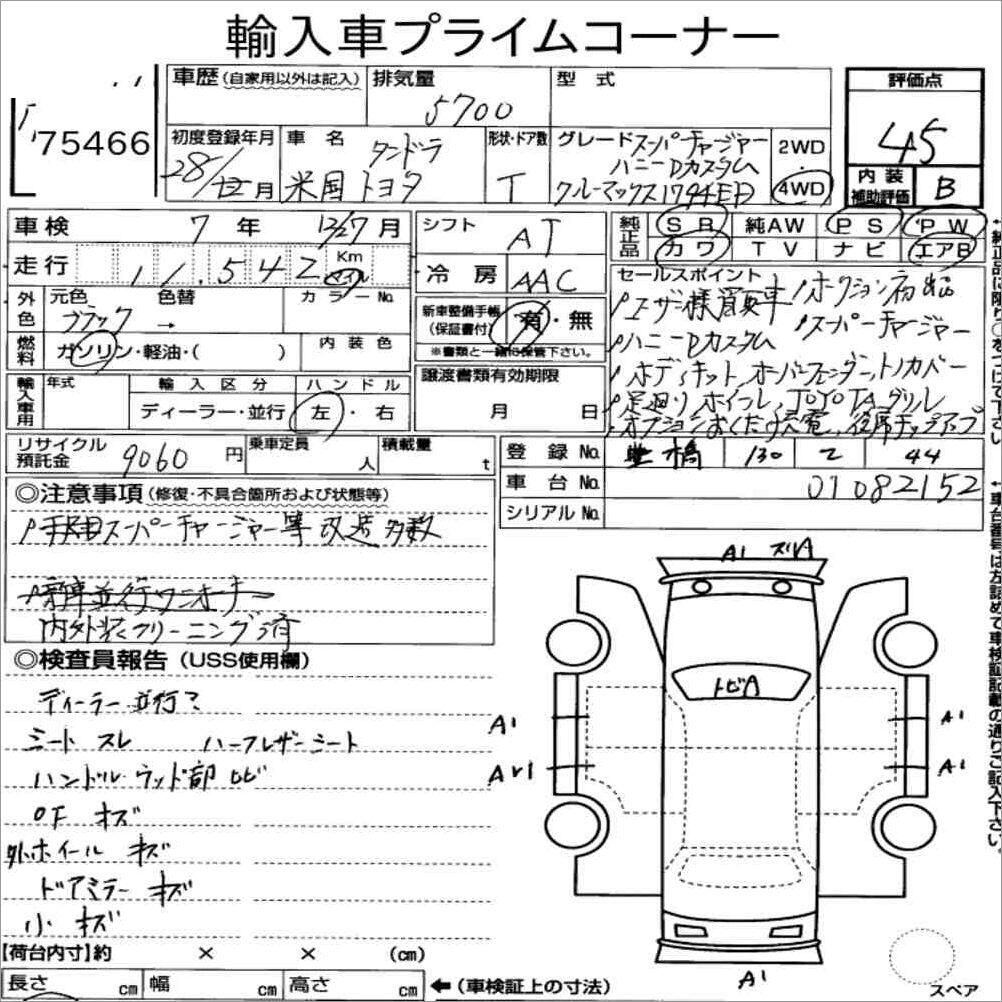 輸入車プライムコーナー
75466
車歴(自家用以外は記入)
排気量
5700
型 式
評価点
45
内装補助評価
B
初度登録年月
28/12月
車 名
タンドラ
米国トヨタ
形状・ドア数
T
グレード スーパーチャージャー
ハニーDカスタム
クルーマックス1794ED
2WD
4WD
車検 7年 12/27月
走行 11,542
Km
マイル
シフト AT
冷房 AAC
純正品
SR 純AW PS PW
カワ TV ナビ エアB
外色
元色 ブラック →
色替
カラーNo.
燃料
ガソリン・軽油・( )
内装色
新車整備手帳
(保証書付)
有・無
※書類と一緒に保管下さい。
輸入車用
年式
輸入区分
ディーラー・並行
ハンドル
左・右
譲渡書類有効期限
月 日
セールスポイント
ユーザー様買取車 オークション初出品
ハニーDカスタム スーパーチャージャー
ボディキット オーバーフェンダー トノカバー
足廻り ホイール TOYOTAグリル
オプションおくだけ充電
リサイクル預託金 9060円
乗車定員 人
積載量 t
登録No. 豊橋 130 44
車台No. 01082152
シリアルNo.
◎注意事項(修復・不具合箇所および状態等)
スーパーチャージャー等 改造多数
新車並行ワンオーナー
内外装クリーニング済
◎検査員報告(USS使用欄)
ディーラー並行?
シート スレ ハーフレザーシート
ハンドル ウッド部 ヒビ
OF キズ
外ホイール キズ
ドアミラー キズ
小キズ
A1 スリA
トビA
A1
A1
A1
A1
スペア
【荷台内寸】約 × × (cm)
長さ cm 幅 cm 高さ cm
←(車検証上の寸法)